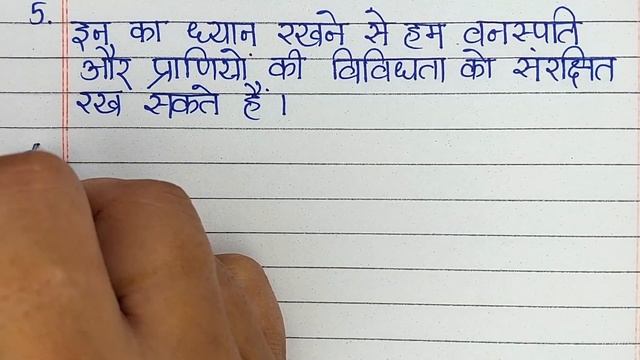 5. इन का ध्यान रखने से हम वनस्पति
और प्राणियों की विविधता को संरक्षित
रख सकते हैं।